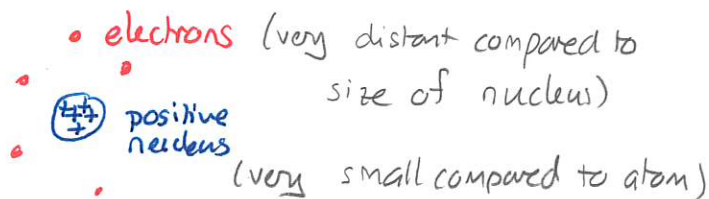 electrons (very distant compared to
size of nucleus)
++
+++
+
positive
nucleus
(very small compared to atom)